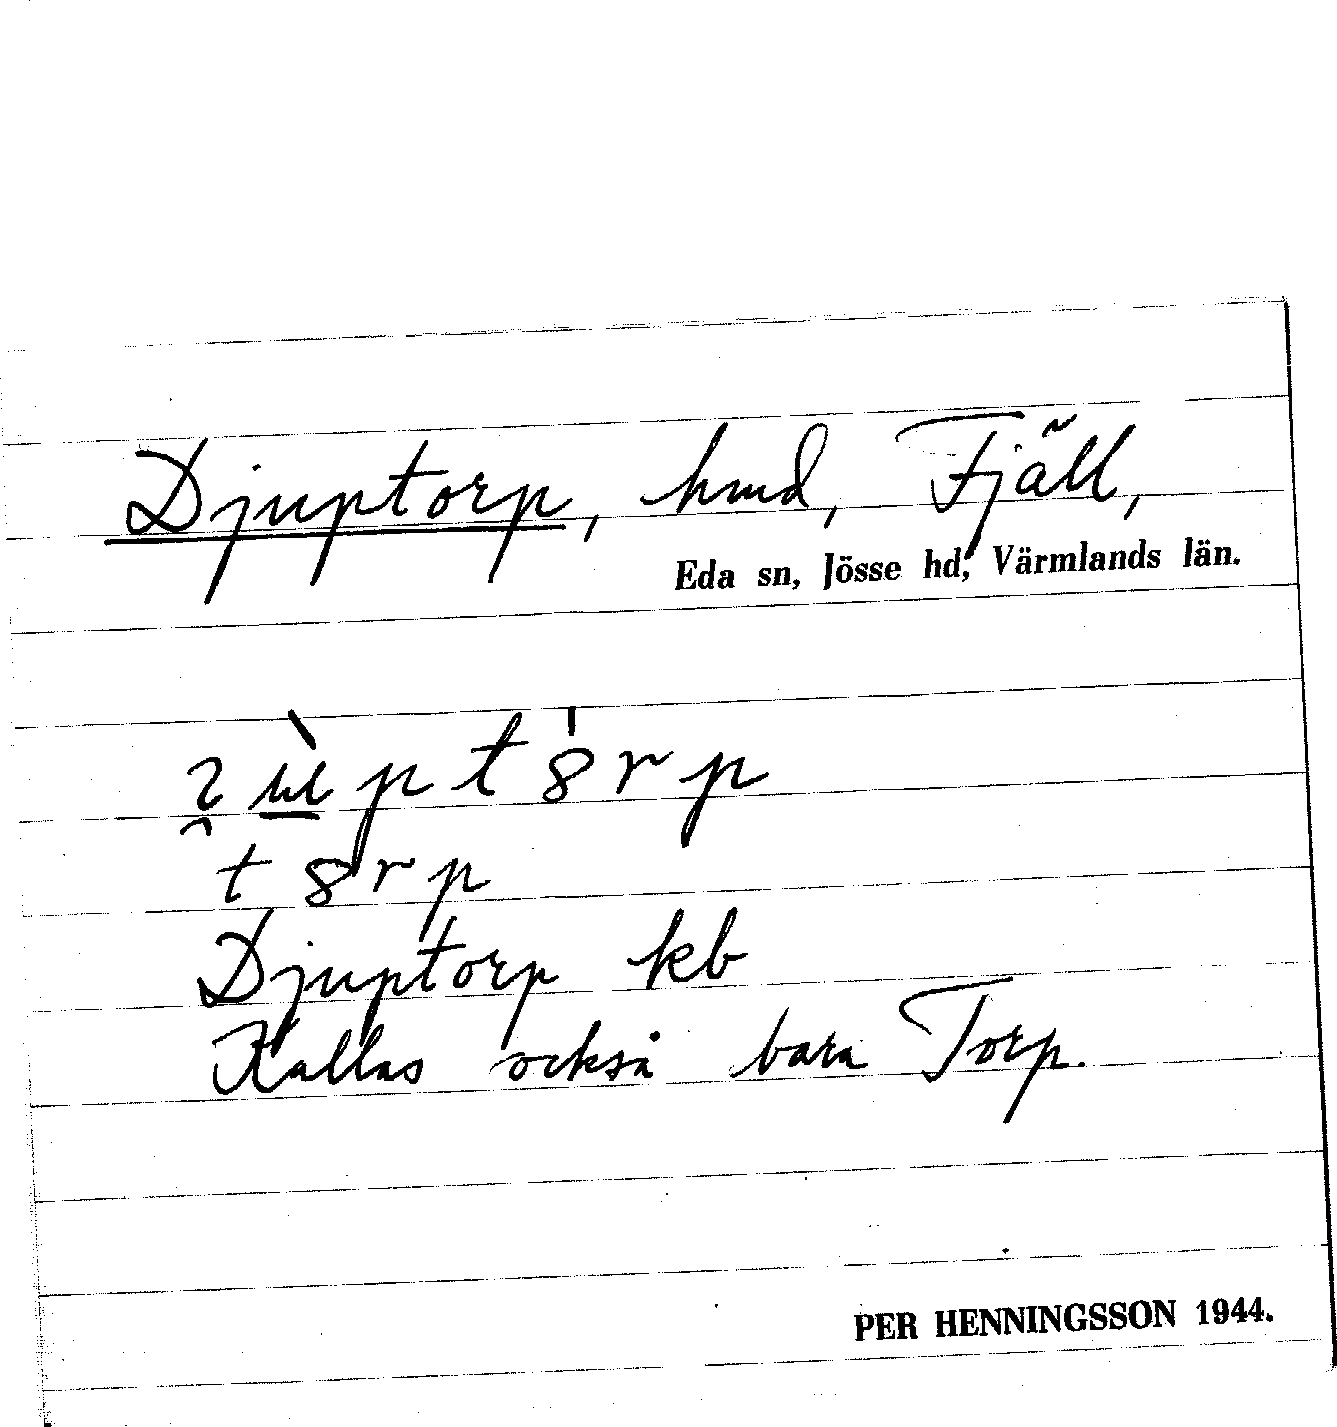 Djuptorp, hmd, Fjäll,
Eda sn, Jösse hd, Värmlands län.
t8rp
Djuptorp kb
Kallas också bara Torp.
PER HENNINGSSON 1944.